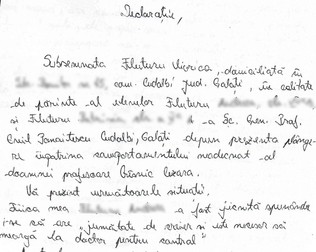 Declarație,
Subsemnata Filuturu Viorica, domiciliată în
com. Cudalbi Jud. Galați, în calitate
de părinte al elevilor Filuturu
și Filuturu de la Șc. Gen. Prof.
Emil Panaitescu Cudalbi, Galați depun prezenta plânge-
re împotriva comportamentului inadecvat al
doamnei profesoare Cezara.
Vă prezint următoarele situații.
Fiica mea a fost jicnită spunându-
i-se că are "jumătate de creier și este nevoie să
meargă la doctor pentru control"